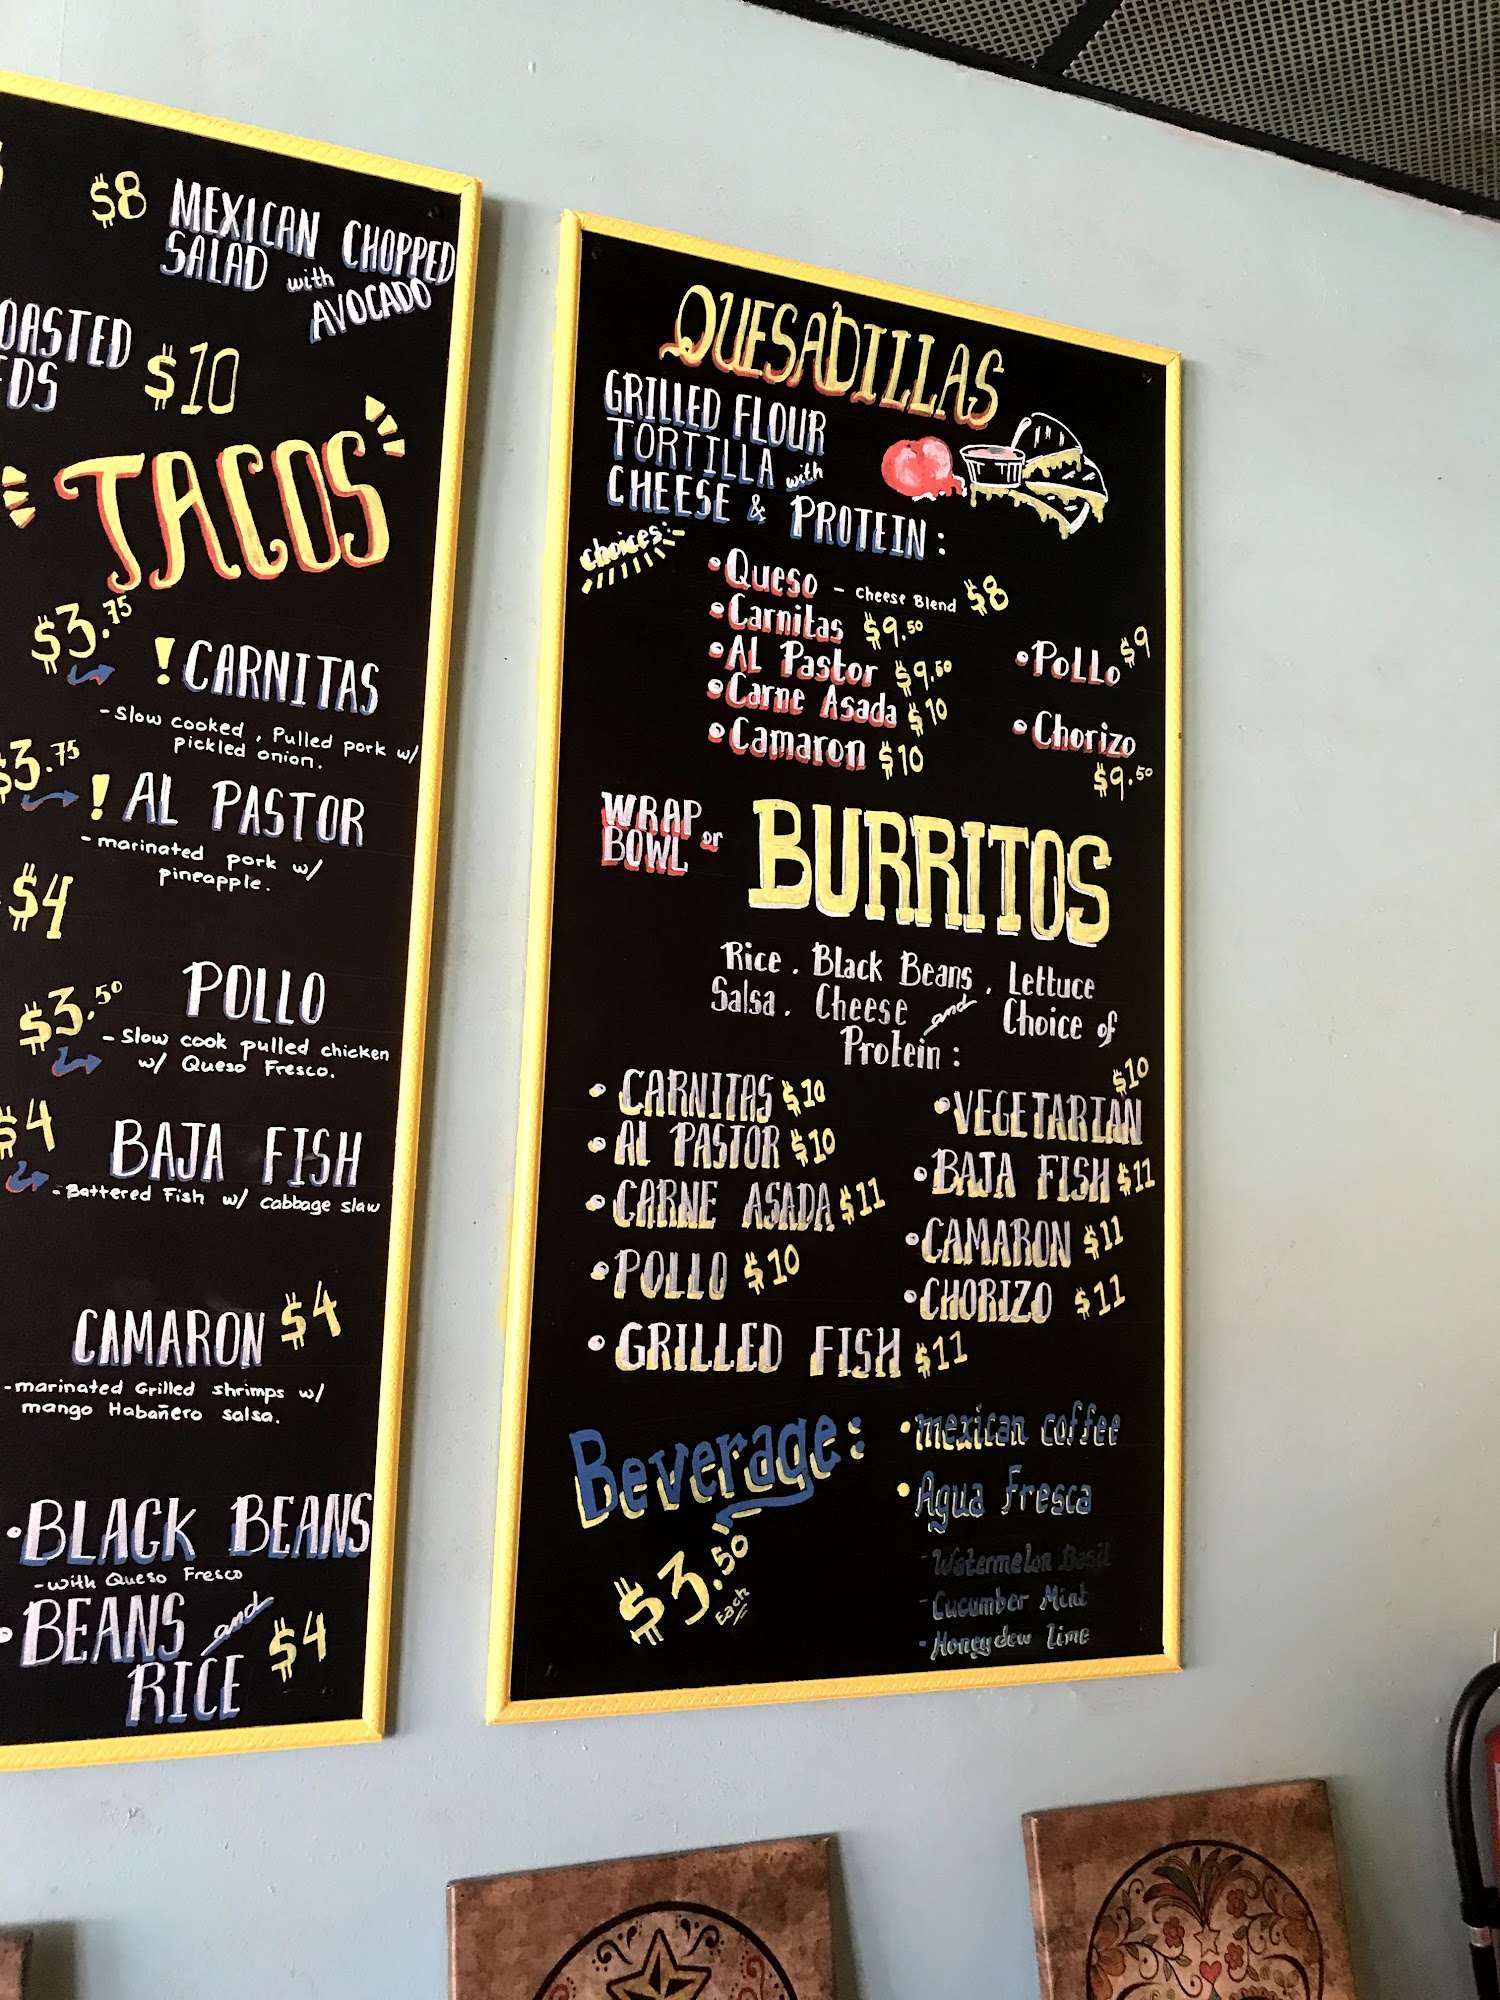 $8 MEXICAN CHOPPED
SALAD with
AVOCADO
$10
TACOS
$3.75
! CARNITAS
- Slow cooked, Pulled pork w/
pickled onion.
$3.75
! AL PASTOR
- marinated pork w/
pineapple.
$4
POLLO
$3.50
- Slow cook pulled chicken
w/ Queso Fresco.
$4
BAJA FISH
- Battered Fish w/ cabbage slaw
CAMARON $4
- marinated Grilled shrimps w/
mango Habañero salsa.
• BLACK BEANS
- with Queso Fresco
• BEANS and
RICE $4
QUESADILLAS
GRILLED FLOUR
TORTILLA with
CHEESE & PROTEIN:
choices:
• Queso - Cheese Blend $8
• Carnitas $9.50
• AL Pastor $9.50
• Carne Asada $10
• Camaron $10
• Pollo $9
• Chorizo
$9.50
WRAP or
BOWL
BURRITOS
Rice. Black Beans. Lettuce
Salsa. Cheese and Choice of
Protein:
• CARNITAS $10
• AL PASTOR $10
• CARNE ASADA $11
• POLLO $10
• GRILLED FISH $11
$10
• VEGETARIAN
• BAJA FISH $11
• CAMARON $11
• CHORIZO $11
Beverage:
$3.50
Each
• mexican coffee
• Agua Fresca
- Watermelon Basil
- Cucumber Mint
- Honeydew Lime